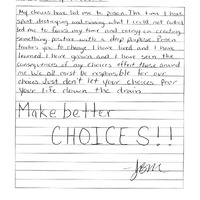 My choices have led me to prison. The time I have
spent destroying and running what I could not control
led me to focus my time and energy on creating
something positive with a deep purpose. Prison
teaches you to change. I have lived and I have
learned I have grown and I have seen the
consequences of my choices effect those around
me. We all must be responsible for our
choices Just don't let your choices Pour
your life down the drain
Make better
CHOICES!!